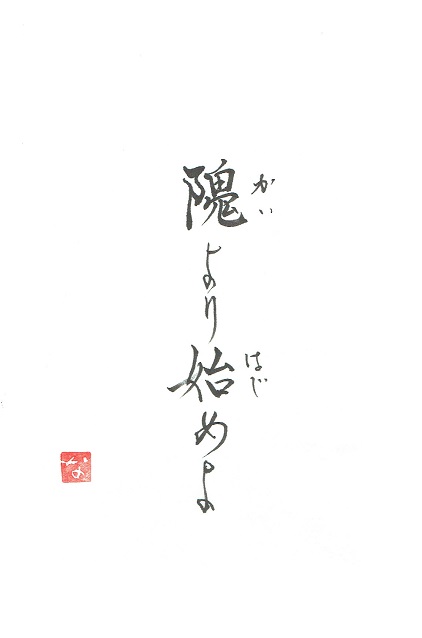 隗より始めよ
かい
はじ